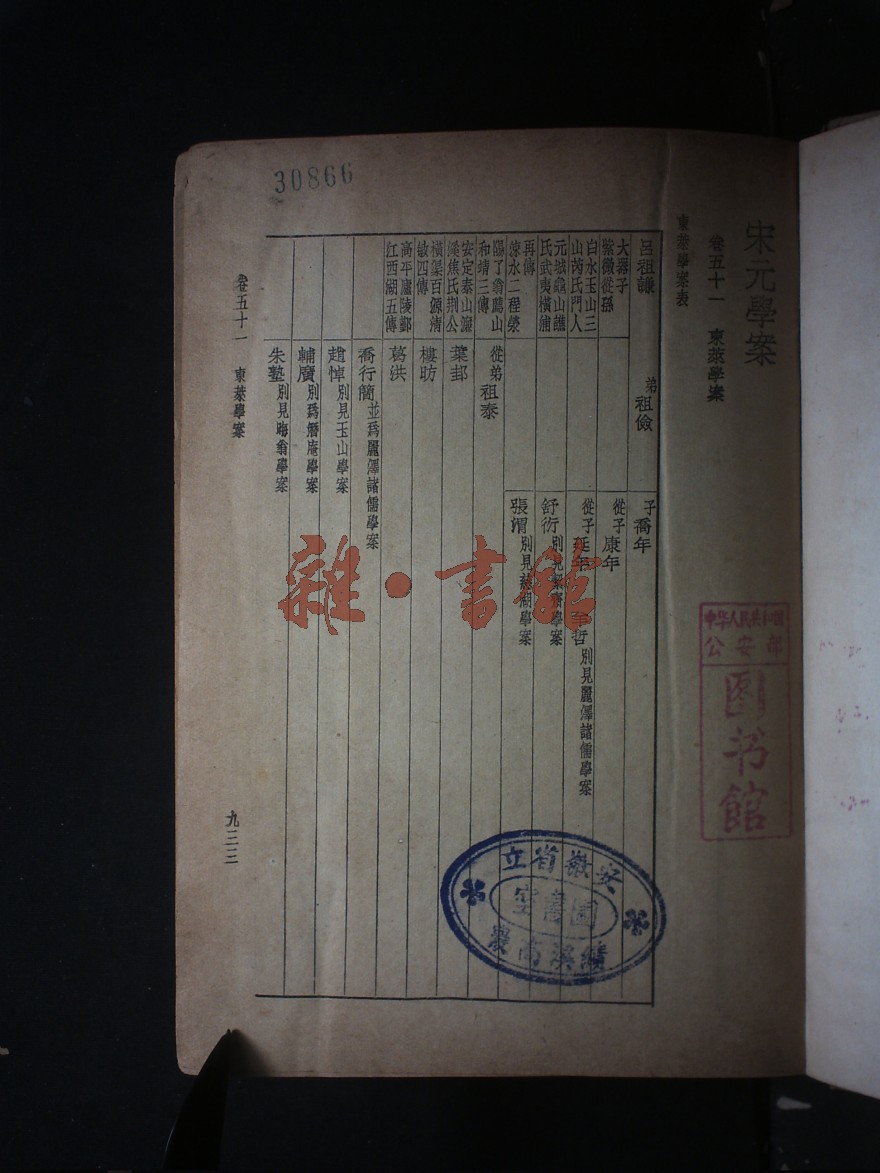 30866
宋元學案
卷五十一　東萊學案
東萊學案表
呂祖謙
大器子
紫微從孫
白水玉山三
山芮氏門人
元城龜山譙
氏武夷橫浦
再傳
涑水二程滎
陽了翁廌山
和靖三傳
安定泰山濂
溪焦氏荆公
橫渠百源清
敏四傳
高平廬陵鄞
江西湖五傳
弟祖儉
子喬年
從子康年
從子延年
至哲別見麗澤諸儒學案
舒衍別見絜齋學案
張渭別見慈湖學案
從弟祖泰
葉邽
樓昉
葛洪
喬行簡並為麗澤諸儒學案
趙焯別見玉山學案
輔廣別為潛庵學案
朱塾別見晦翁學案
卷五十一　東萊學案
九三三
雜·書館
中华人民共和国
公安部
图书馆
安徽省立
圖書室
績溪高農